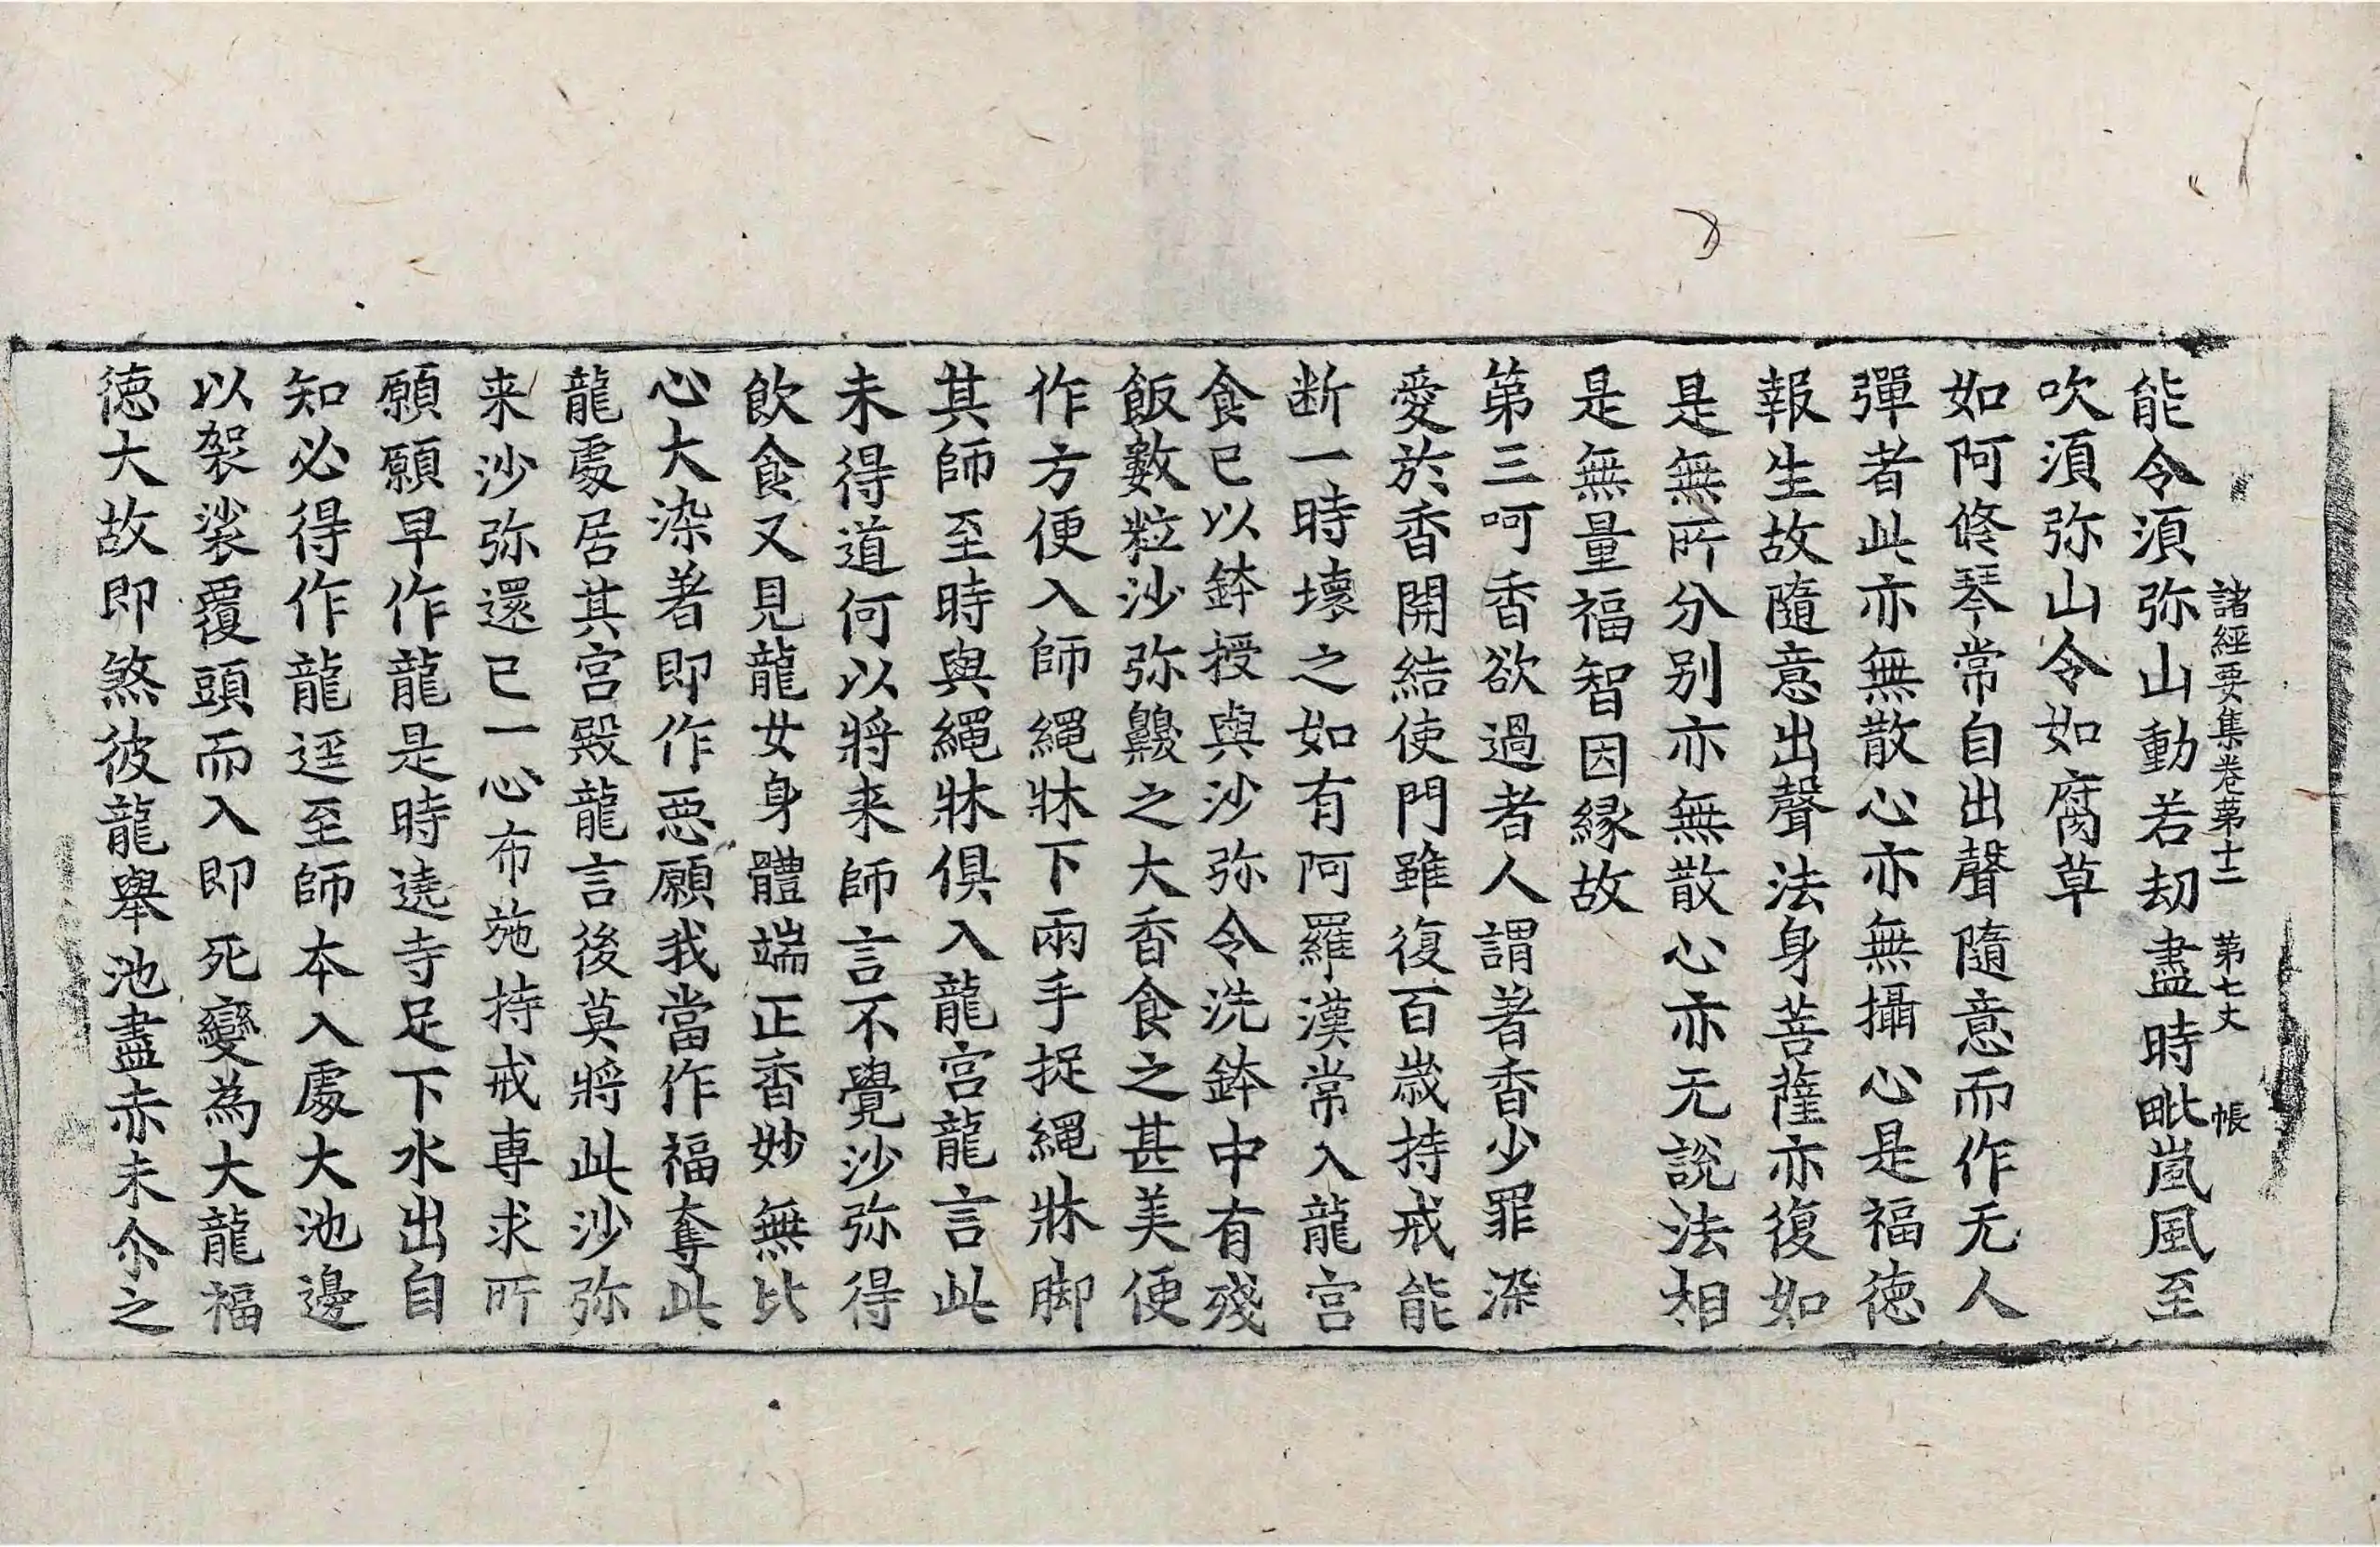 諸經要集卷苐十二 苐七丈 帳
能令湏弥山動若刼盡時毗嵐風至
吹湏弥山令如腐草
如阿修琴常自出聲隨意而作无人
彈者此亦無散心亦無攝心是福徳
報生故隨意出聲法身菩薩亦復如
是無所分别亦無散心亦无說法相
是無量福智因縁故
苐三呵香欲過者人謂著香少罪深
愛於香開結使門雖復百歲持戒能
断一時壞之如有阿羅漢常入龍宫
食已以鉢授與沙弥令洗鉢中有殘
飯數粒沙弥齅之大香食之甚美便
作方便入師繩牀下兩手捉繩牀脚
其師至時與繩牀俱入龍宫龍言此
未得道何以將来師言不覺沙弥得
飲食又見龍女身體端正香妙無比
心大染著即作惡願我當作福奪此
龍處居其宫殿龍言後莫將此沙弥
来沙弥還已一心布施持戒専求所
願願早作龍是時遶寺足下水出自
知必得作龍逕至師本入處大池邊
以袈裟覆頭而入即死變為大龍福
徳大故即煞彼龍舉池盡赤未尒之